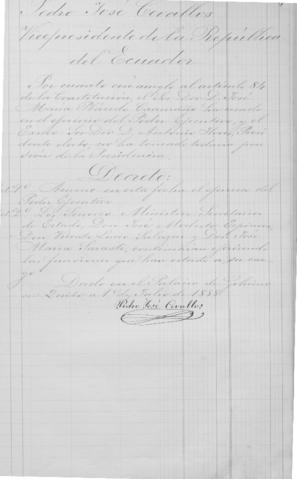 Pedro José Cevallos
Vicepresidente de la República
del Ecuador
Por cuanto con arreglo al artículo 84
de la Constitución, el Sor. Dor. D. José
María Plácido Caamaño ha cesado
en el ejercicio del Poder Ejecutivo, y el
Excmo. Sor. Dor. D. Antonio Flores, Presi
dente electo, no ha tomado todavía pose
sión de la Presidencia.
Decreto:
Art. 1º. Asumo en esta fecha el ejercicio del
Poder Ejecutivo.
Art. 2º. Los Señores Ministros Secretarios
de Estado, Don José Modesto Espinosa,
Don Vicente Lucio Salazar y Don José
María Sarasti, continuarán ejerciendo
las funciones que han estado a su car
go.
Dado en el Palacio de Gobierno
en Quito a 1º de Julio de 1888.
Pedro José Cevallos